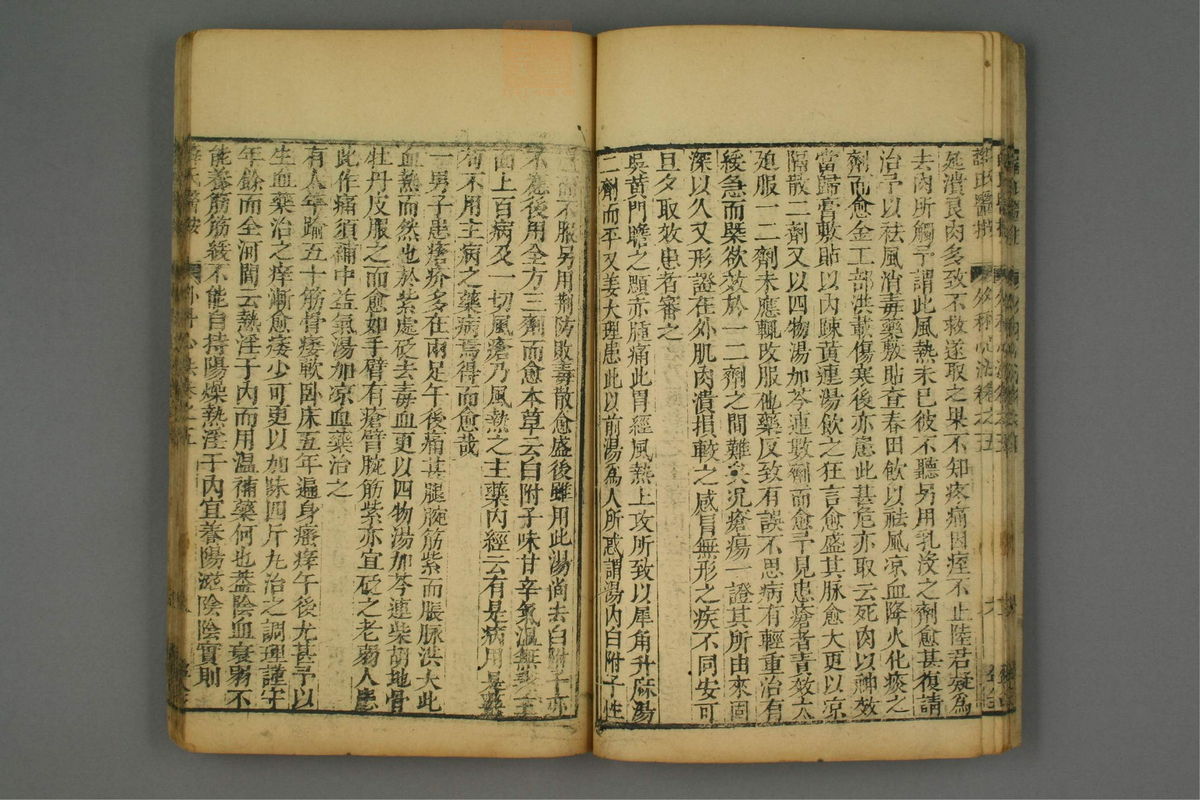 延潰良肉多致不救遂取之果不知疼痛因痓不止陸君疑為
去肉所觸予謂此風熱未已彼不聽另用乳沒之劑愈甚復請
治予以祛風消毒藥敷貼查春田飲以祛風凉血降火化痰之
劑而愈金工部洪載傷寒後亦患此甚危亦取云死肉以神效
當歸膏敷貼以內疎黃連湯飲之狂言愈盛其脉愈大更以凉
隔散二劑又以四物湯加芩連數劑而愈予見患瘡者責效太
廹服一二劑未應輒改服他藥反致有誤不思病有輕重治有
緩急而槩欲效於一二劑之間難矣况瘡瘍一證其所由來固
深以久又形證在外肌肉潰損較之感冐無形之疾不同安可
旦夕取效患者審之
吳黃門瞻之頥亦腫痛此胃經風熱上攻所致以犀角升麻湯
二劑而平又姜大理患此以前湯為人所惑謂湯內白附子性
不服另用荆防敗毒散愈盛後雖用此湯尚去白附子亦
不應後用全方三劑而愈本草云白附子味甘辛氣温無毒主
面上百病及一切風瘡乃風熱之主藥內經云有是病用是藥
苟不用主病之藥病焉得而愈哉
一男子患瘡疥多在兩足午後痛甚腿腕筋紫而脹脉洪大此
血熱而然也於紫處砭去毒血更以四物湯加芩連柴胡地骨
牡丹皮服之而愈如手臂有瘡臂腕筋紫亦宜砭之老弱人患
此作痛須補中益氣湯加凉血藥治之
有人年踰五十筋骨痿軟卧床五年遍身瘙痒午後尤甚予以
生血藥治之痒漸愈痿少可更以加味四斤丸治之調理謹守
年餘而全河間云熱淫于內而用温補藥何也蓋陰血衰弱不
能養筋筋緩不能自持陽燥熱淫于內宜養陽滋陰陰實則